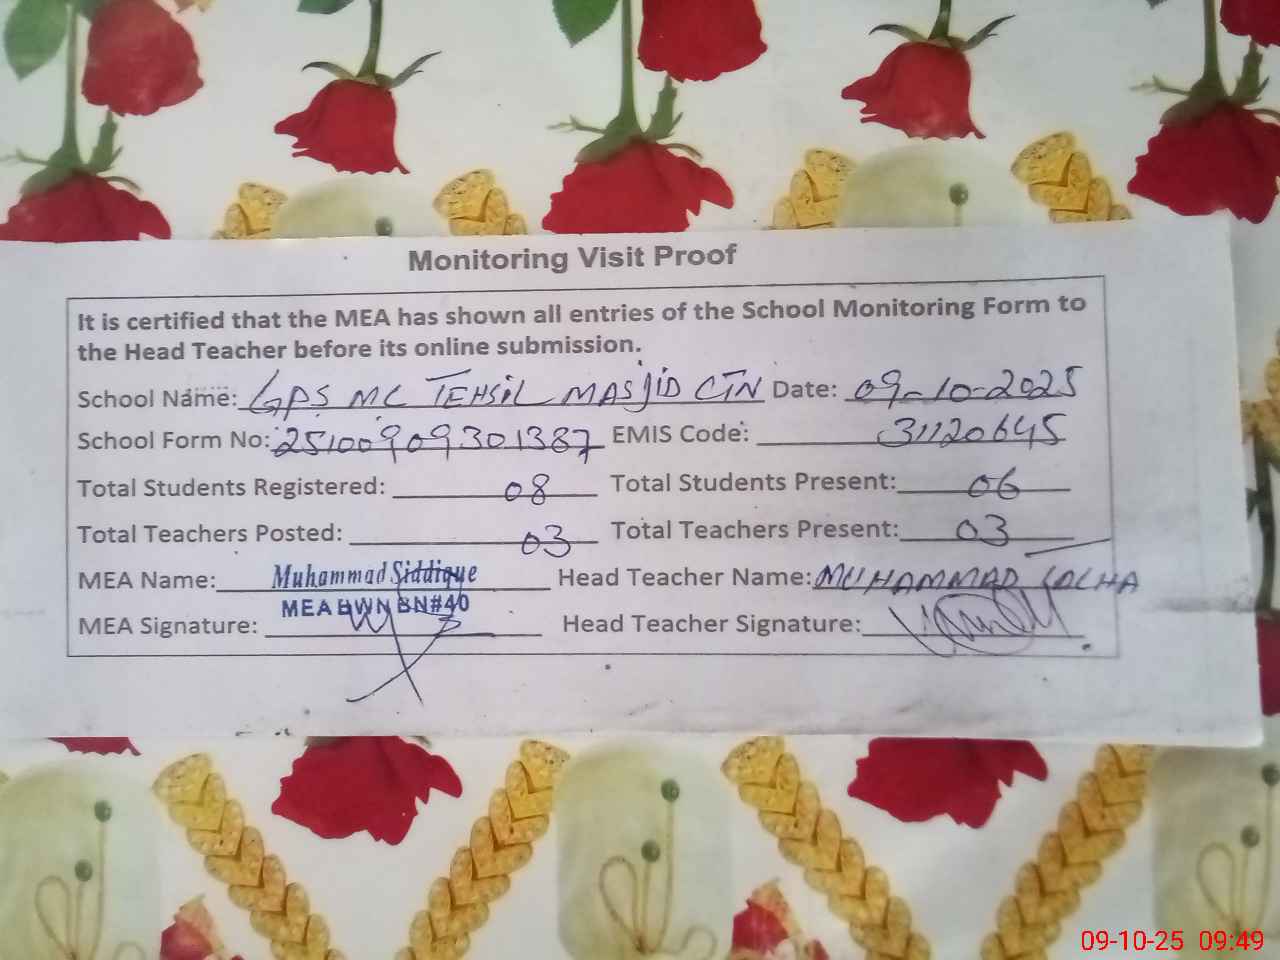 Monitoring Visit Proof
It is certified that the MEA has shown all entries of the School Monitoring Form to
the Head Teacher before its online submission.
School Name: GPS MC TEHSIL MASJID CTN Date: 09-10-2025
School Form No: 25100909301387 EMIS Code: 31120645
Total Students Registered: 08 Total Students Present: 06
Total Teachers Posted: 03 Total Teachers Present: 03
MEA Name: Muhammad Siddique Head Teacher Name: MUHAMMAD
MEA BWN BN#40
MEA Signature: Head Teacher Signature:
09-10-25 09:49